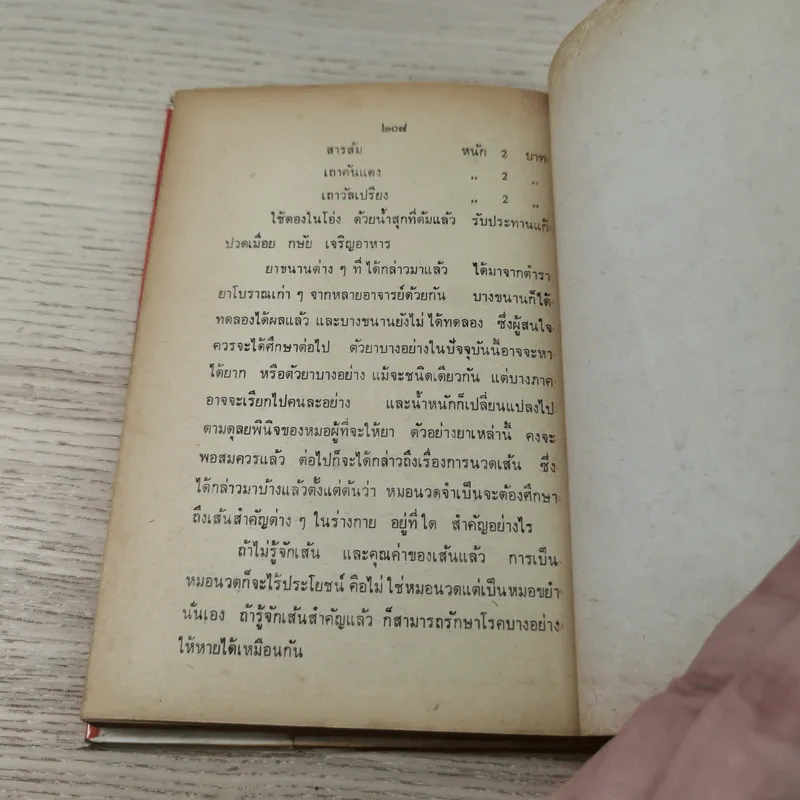 ๒๐๗
สารส้ม หนัก 2 บาท
เถาคันแดง ,, 2 ,,
เถาวัลเปรียง ,, 2 ,,
ใช้ดองในโอ่ง ด้วยน้ำสุกที่ต้มแล้ว รับประทานแก้
ปวดเมื่อย กษัย เจริญอาหาร
ยาขนานต่าง ๆ ที่ ได้กล่าวมาแล้ว ได้มาจากตำรา
ยาโบราณเก่า ๆ จากหลายอาจารย์ด้วยกัน บางขนานก็ได้
ทดลองได้ผลแล้ว และบางขนานยังไม่ ได้ทดลอง ซึ่งผู้สนใจ
ควรจะได้ศึกษาต่อไป ตัวยาบางอย่างในปัจจุบันนี้อาจจะหา
ได้ยาก หรือตัวยาบางอย่าง แม้จะชนิดเดียวกัน แต่บางภาค
อาจจะเรียกไปคนละอย่าง และน้ำหนักก็เปลี่ยนแปลงไป
ตามดุลยพินิจของหมอผู้ที่จะให้ยา ตัวอย่างยาเหล่านี้ คงจะ
พอสมควรแล้ว ต่อไปก็จะได้กล่าวถึงเรื่องการนวดเส้น ซึ่ง
ได้กล่าวมาบ้างแล้วตั้งแต่ต้นว่า หมอนวดจำเป็นจะต้องศึกษา
ถึงเส้นสำคัญต่าง ๆ ในร่างกาย อยู่ที่ ใด สำคัญอย่างไร
ถ้าไม่รู้จักเส้น และคุณค่าของเส้นแล้ว การเป็น
หมอนวดก็จะไร้ประโยชน์ คือไม่ ใช่หมอนวดแต่เป็นหมอขยำ
นั่นเอง ถ้ารู้จักเส้นสำคัญแล้ว ก็สามารถรักษาโรคบางอย่าง
ให้หายได้เหมือนกัน